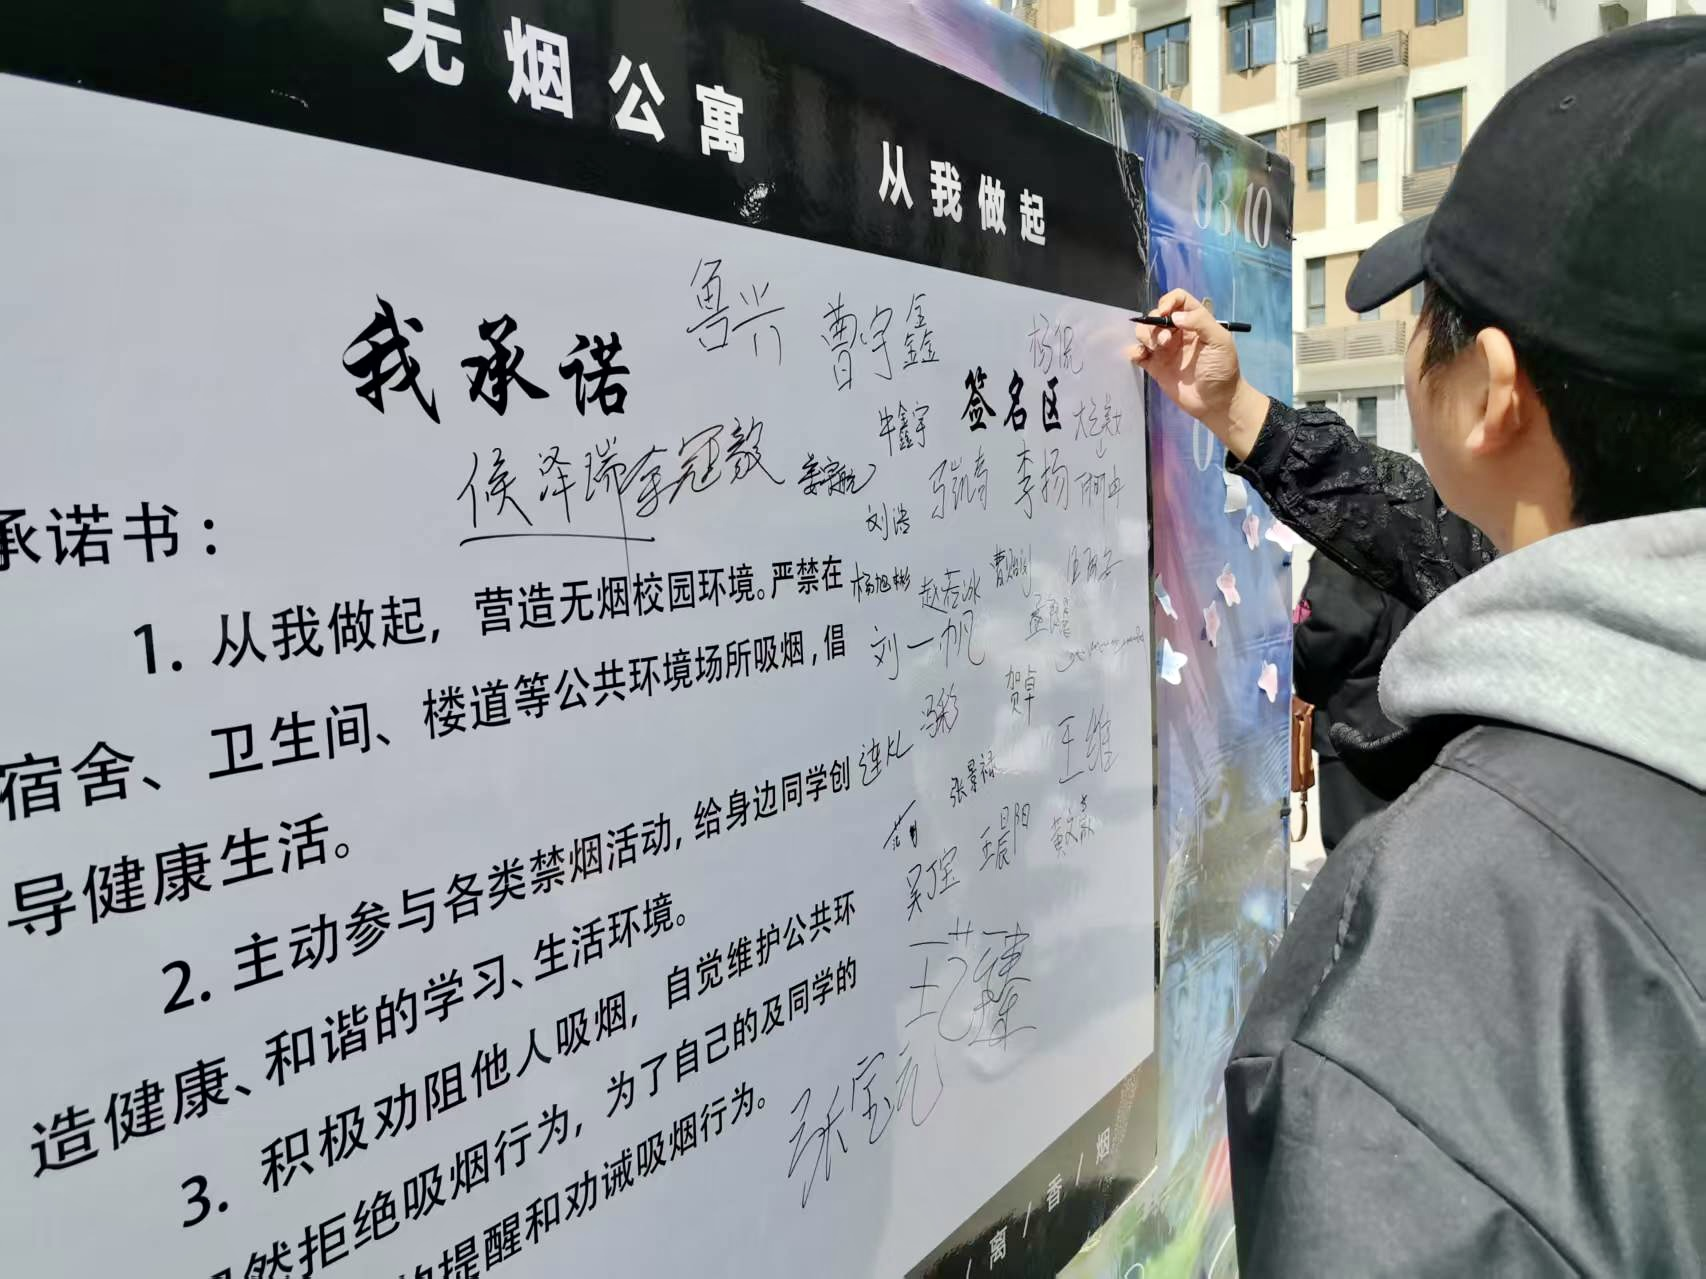 无烟公寓 从我做起
03 10
我承诺
签名区
鲁兴
曹宇鑫
杨侃
牛鑫宇
侯泽瑞
李冠毅
姜宇航
刘浩
李扬
承诺书：
1. 从我做起，营造无烟校园环境。严禁在
宿舍、卫生间、楼道等公共环境场所吸烟，倡
导健康生活。
2. 主动参与各类禁烟活动，给身边同学创
造健康、和谐的学习、生活环境。
3. 积极劝阻他人吸烟，自觉维护公共环
然拒绝吸烟行为，为了自己的及同学的
提醒和劝诫吸烟行为。
杨旭彬
赵若冰
刘一帆
贺卓
冯彩
王维
张景禄
吴丁宝
王晨阳
张宝元
离/香/烟